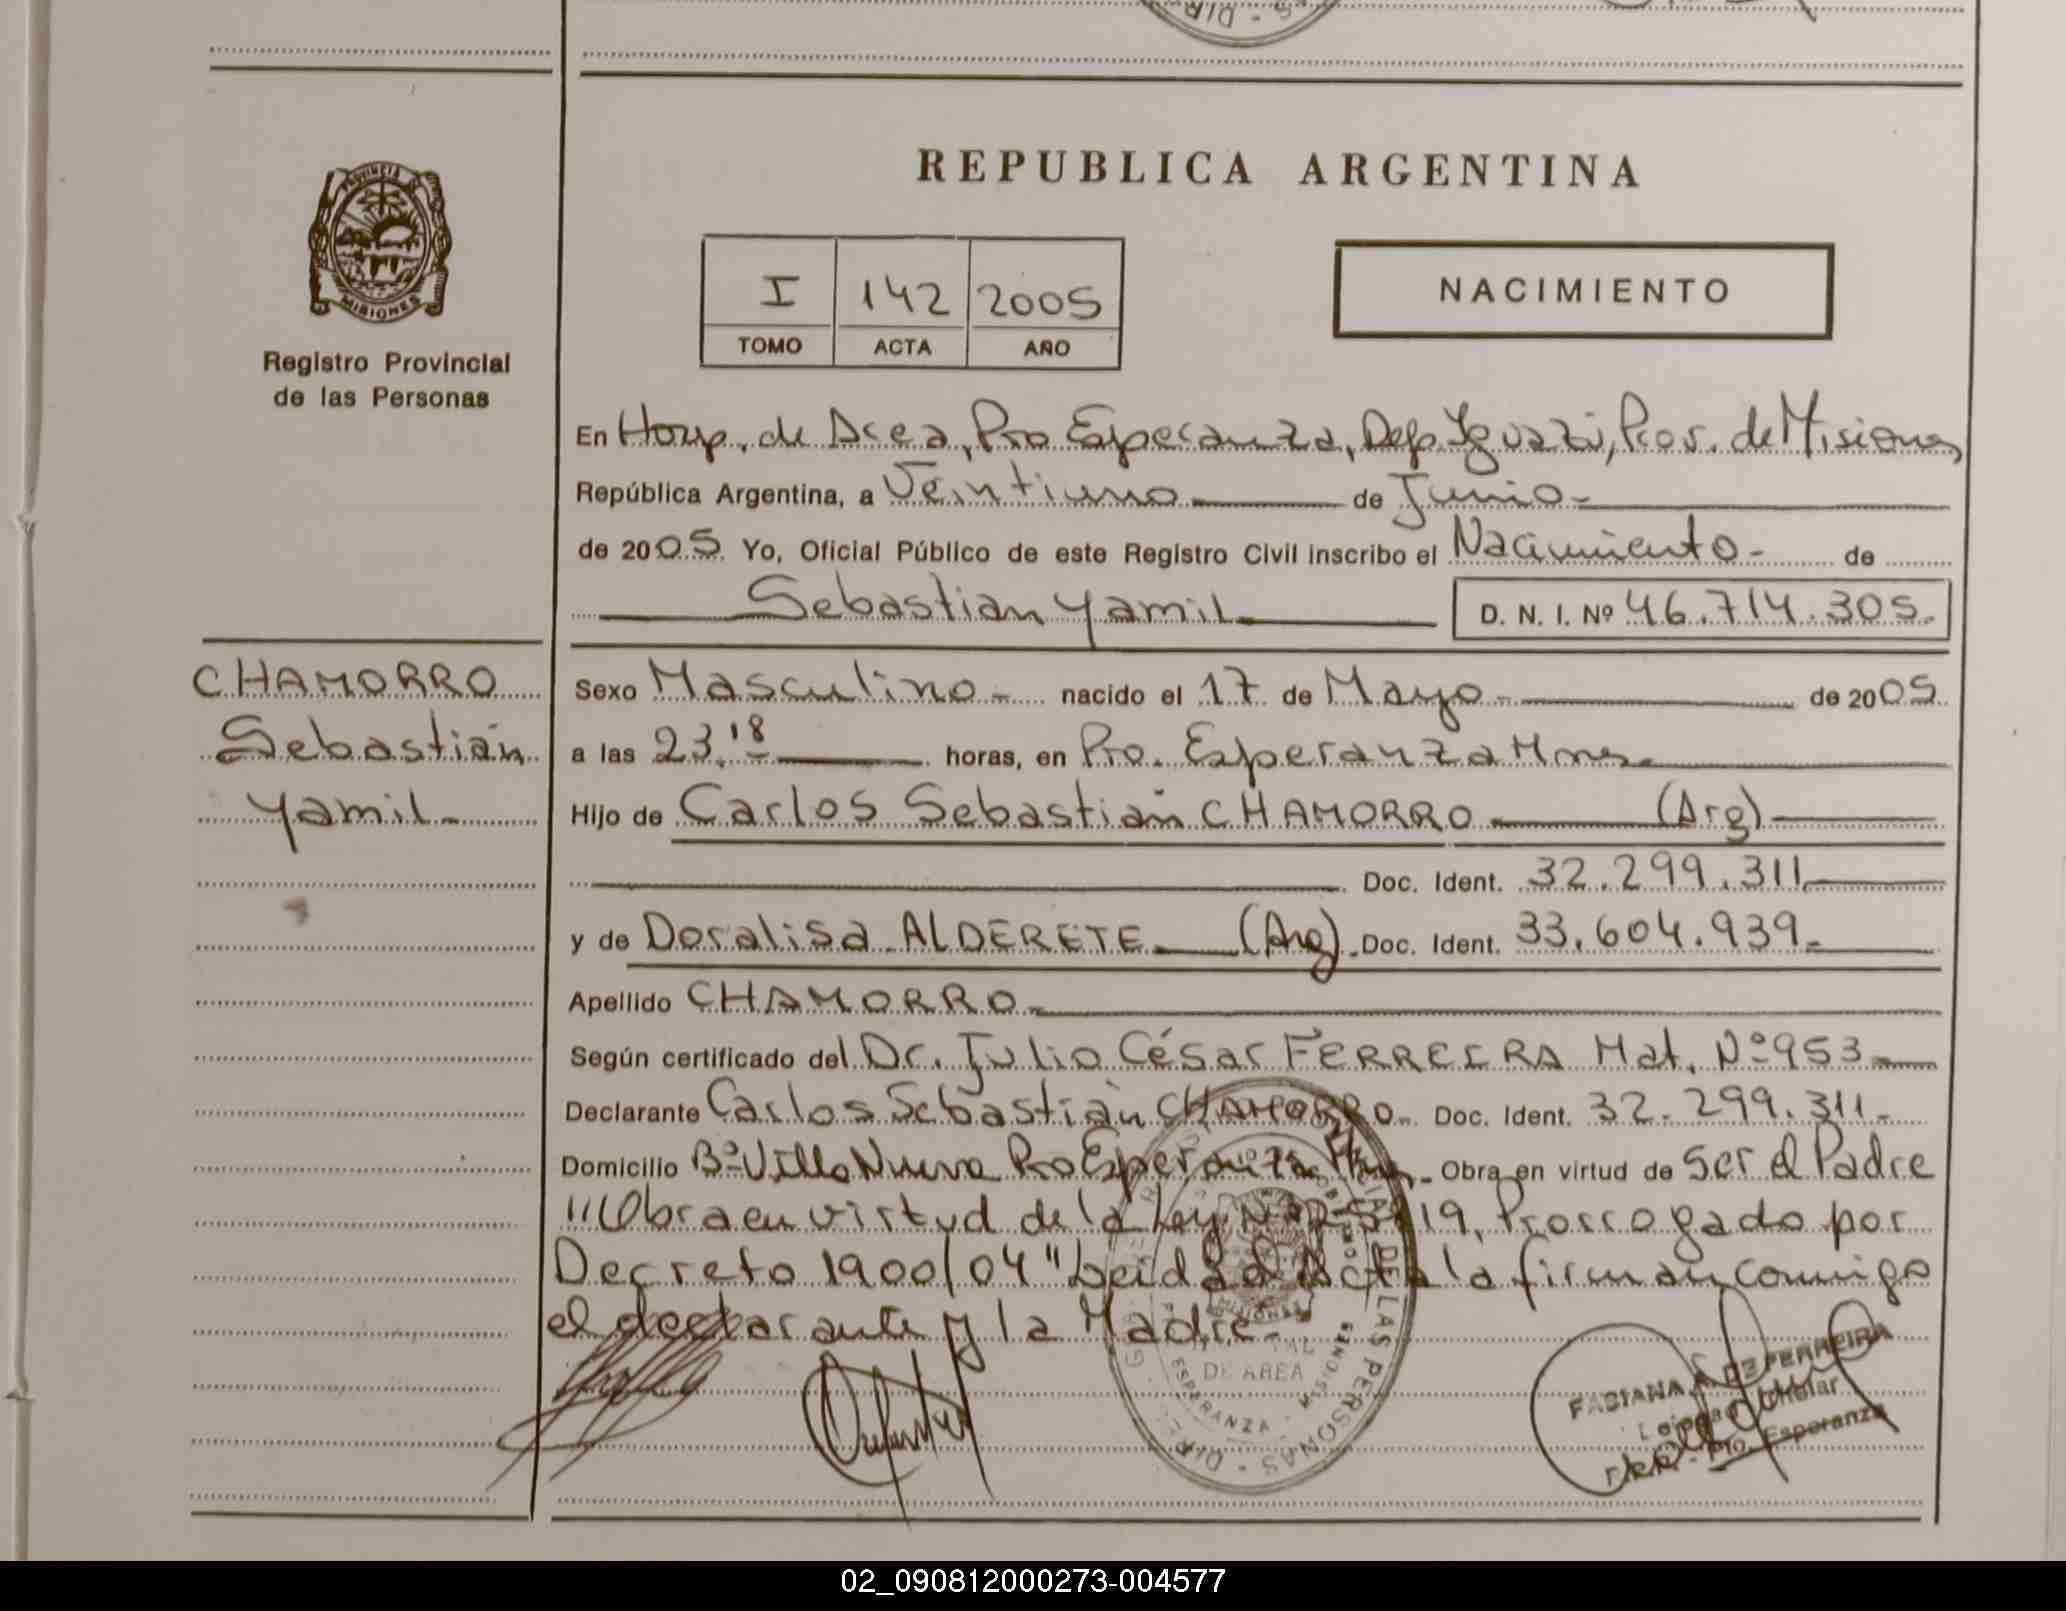 REPUBLICA ARGENTINA
PROVINCIA DE
MISIONES
Registro Provincial
de las Personas
I 142 2005
TOMO ACTA AÑO
NACIMIENTO
En Hosp. de Area, Pto Esperanza, Dep. Iguazú, Prov. de Misiones
República Argentina, a Veintiuno de Junio
de 2005 Yo, Oficial Público de este Registro Civil inscribo el Nacimiento de
Sebastian Yamil D. N. I. Nº 46.714.305.
CHAMORRO
Sebastián
Yamil
Sexo Masculino nacido el 17 de Mayo de 2005
a las 23.18 horas, en Pto. Esperanza Mnes.
Hijo de Carlos Sebastián CHAMORRO (Arg)
Doc. Ident. 32.299.311
y de Doralisa ALDERETE (Arg). Doc. Ident. 33.604.939.
Apellido CHAMORRO
Según certificado del Dr. Julio César FERREIRA Mat. Nº 953
Declarante Carlos Sebastián CHAMORRO Doc. Ident. 32.299.311
Domicilio Bº Villa Nueva Pto Esperanza Mnes. Obra en virtud de Ser el Padre
"Obra en virtud de la Ley Nº 25819, Prorrogado por
Decreto 1900/04" Leida el Acta la firman conmigo
el declarante y la Madre.
DE AREA
ESPERANZA - MISIONES
DE LAS PERSONAS - DIR.
FABIANA DE FERREIRA
Titular
Pto. Esperanza
02_090812000273-004577